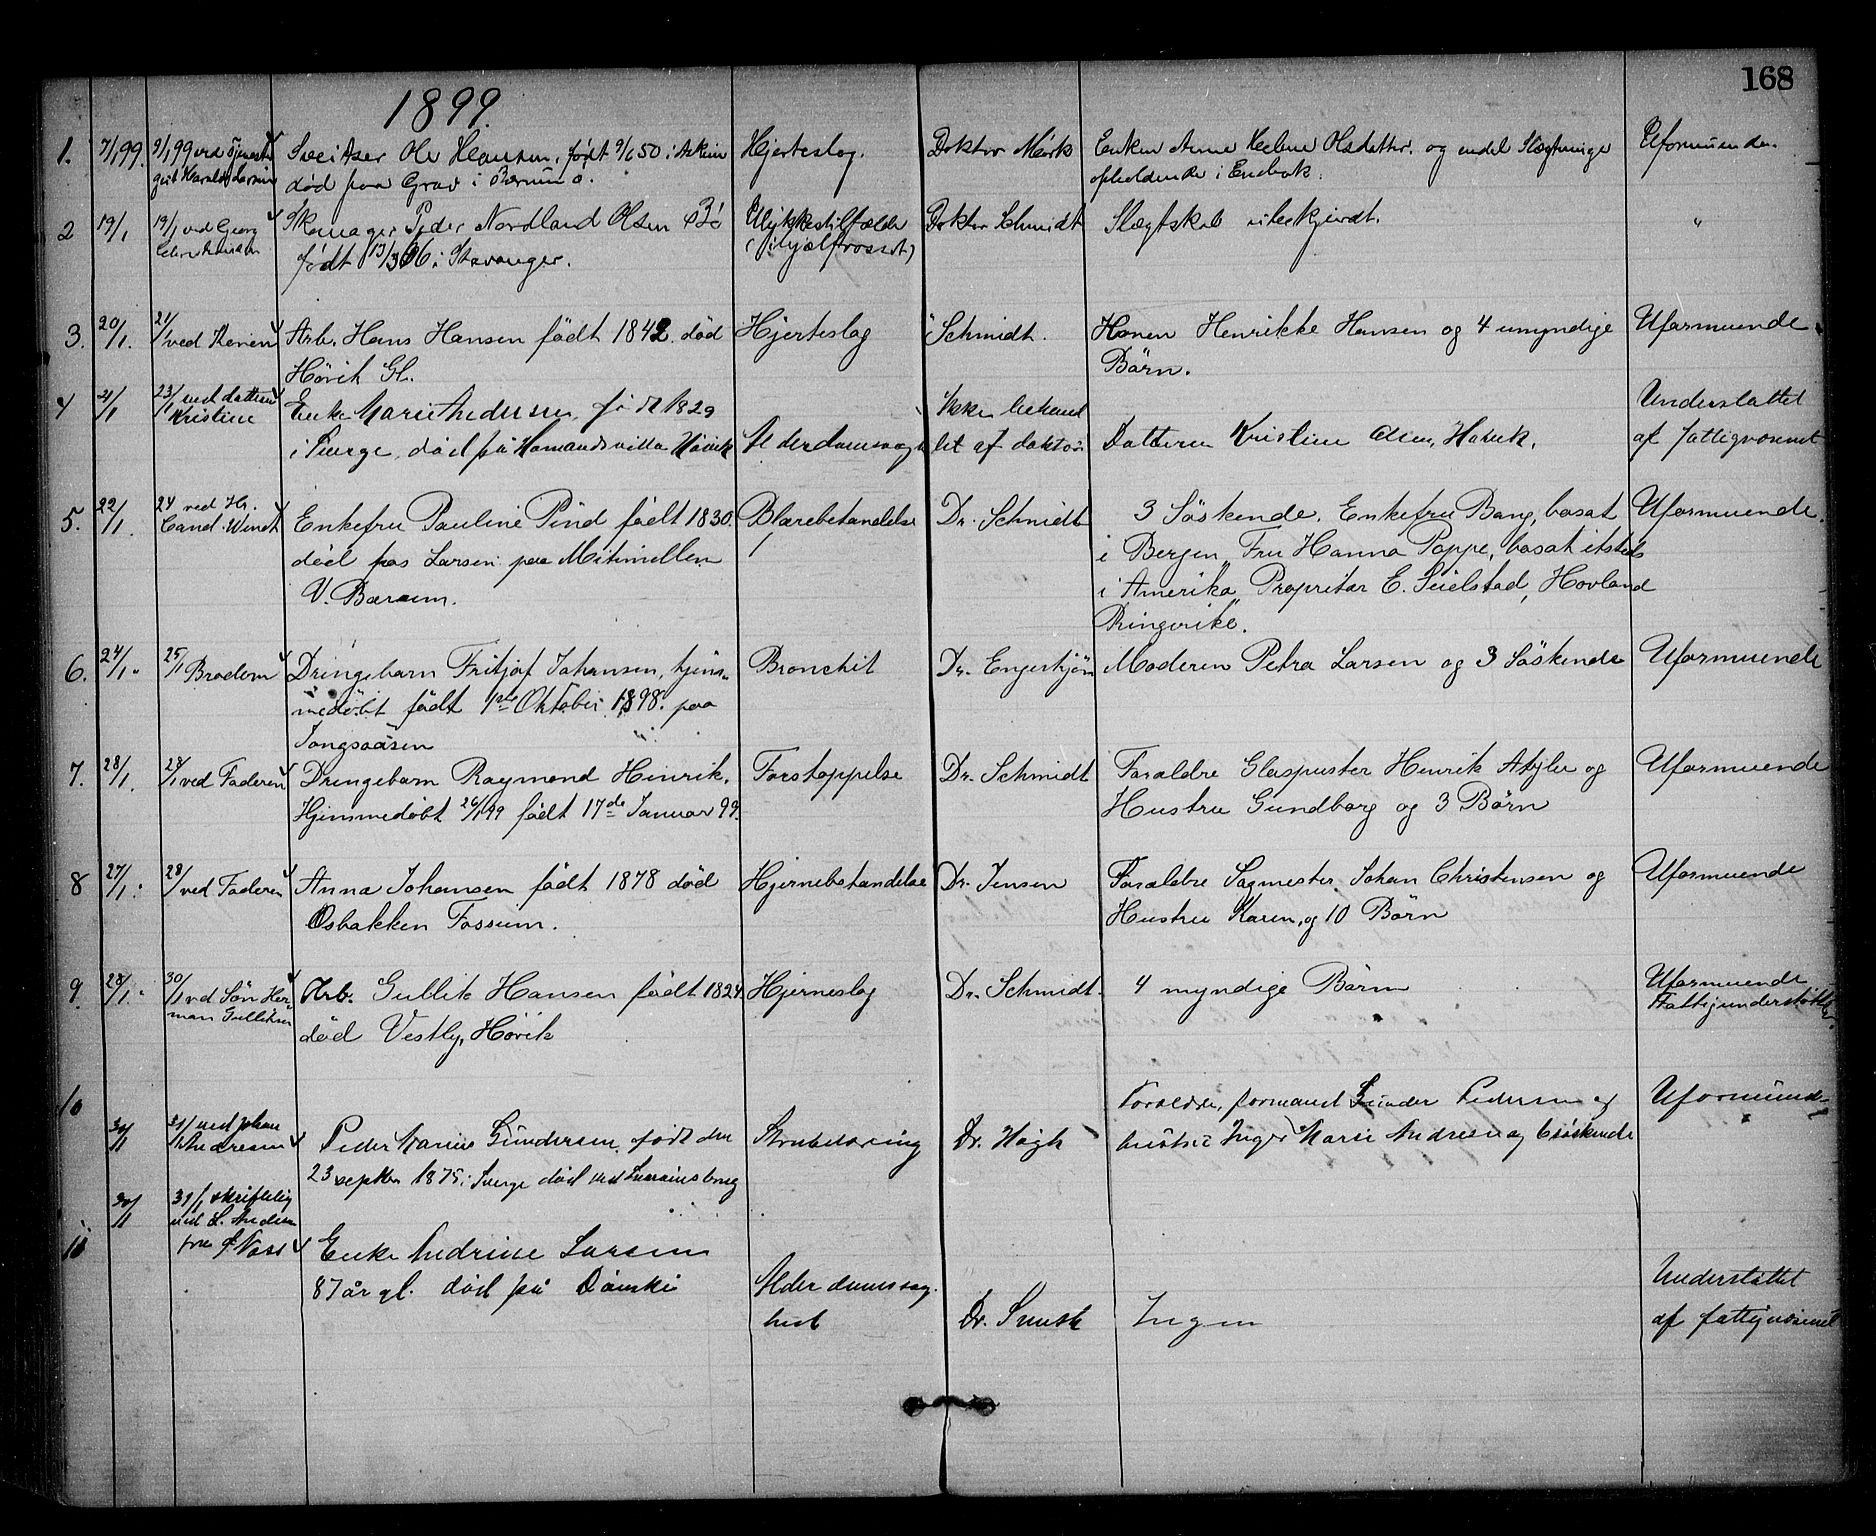 168
1899.
1. 7/1 99. 9/1 99 ved Sveitser Ole Hansen, født 9/6 50 i Askim Hjerteslag. Doktor Mörk Enken Anne Helene Olsdatter. og endel Slægtninge Uformuende.
død paa Grav i Bærum. opholdende i Enebak.
2 19/1 19/1 ved Georg Skomager Peder Nordland Olsen Ulykkestilfælde Doktor Schmidt Slægtskab ubekjendt. "
født 13/3 66 i Stavanger. (ihjælfrosset)
3. 20/1. 21/1 ved Konen Arb. Hans Hansen födt 1842 död Hjerteslag Schmidt. Konen Henrikke Hansen og 4 umyndige Uformuende
Hövik Gl. Börn.
4 21/1 23/1 ved datteren Enke Marie Andersen, född 1829 Ikke behand Understøttet
Kristine i Sverge, død på Homandsvilla Hövik Alderdomssvag let af doktor Datteren Kristine Olsen, Hövik. af fattigvæsenet
5. 22/1. 24 ved Hr. Enkefru Pauline Pind födt 1830. Blærebetændelse Dr. Schmidt 3 Söskende. Enkefru Bang, bosat Uformuende.
Cand. Windt död hos Larsen paa i Bergen, Fru Hanna Poppe, bosat etsteds
V. Bærum. i Amerika, Propritær E. Sielstad, Hovland
Ringerike.
6. 24/1. 25/1 Broderen Drengebarn Fritjof Johansen, hjem- Bronchit Dr. Engerhjön Moderen Petra Larsen og 3 Söskende Uformuende
medöbt födt 1ste Oktober 1898. paa
Jongsaasen
7. 28/1. 28/1 ved Faderen Drengebarn Raymond Henrik. Forstoppelse Dr. Schmidt Forældre Glaspuster Henrik og Uformuende
Hjemmedöbt 26/1 99 födt 17de Januar 99. Hustru Gundborg og 3 Börn
8 27/1. 28/1 ved Faderen Anna Johansen födt 1878 död Hjernebetændelse Dr. Jensen Forældre Sagmester Johan Christensen og Uformuende
Osbakken Fossum. Hustru Karen, og 10 Börn
9. 28/1. 30/1 ved Sön Her- Arb. Gullik Hansen födt 1824. Hjerneslag Dr. Schmidt. 4 myndige Börn Uformuende
man Gulliksen död Vestly, Hövik Fattigunderstöttet.
10 Forældre, formand Gunder Pedersen og Uformuende
30/1 31/1 ved Johan Peder Marius Gundersen, født den Strubetæring Dr. Høgh hustru Inger Marie Andresen og 6 söskende
Andresen 23 septber 1875 i Sverge död ved
30/1 31/1 skriftlig
ved L. Andersen
11 Enke Andrine Larsen
87 år gl. död på Dönski Alderdomssvag- Understöttet
hed Dr. Smith Ingen af fattigvæsenet